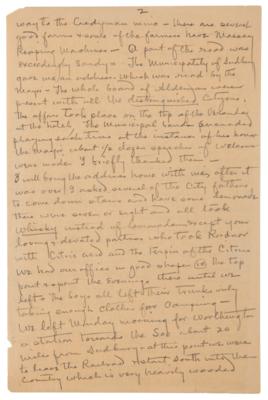 2
way to the Creighton mine – there are several
good farms & some of the farmers have Massey
Reaping Machines – A part of the road was
exceedingly sandy – The Municipality of Sudbury
gave me an address which was read by the
Mayor – The whole board of Aldermen were
present with all the distinguished Citizens.
The affair took place on the top of the Veranda
at the hotel. The Municipal band serenaded
playing several times at the instance of his honor
the Mayor, about ½ dozen speeches of welcome
was made I briefly thanked them –
I will bring the address home with me, after it
was over I asked several of the City fathers
to come down stairs and have some lemonade
there were seven or eight and all took
Whisky instead of lemonade except your
loving & devoted partner who took
with Citric acid and the of the Citrus
We had our office in good shape the top
spent the Evenings there until we
left – The boys all left their trunks only
taking enough clothes for Camping –
We left Monday morning for Worthington
a station towards the Soo about 20
miles from Sudbury – at this point we were
to leave the Railroad & start South into the
Country which is very heavily wooded